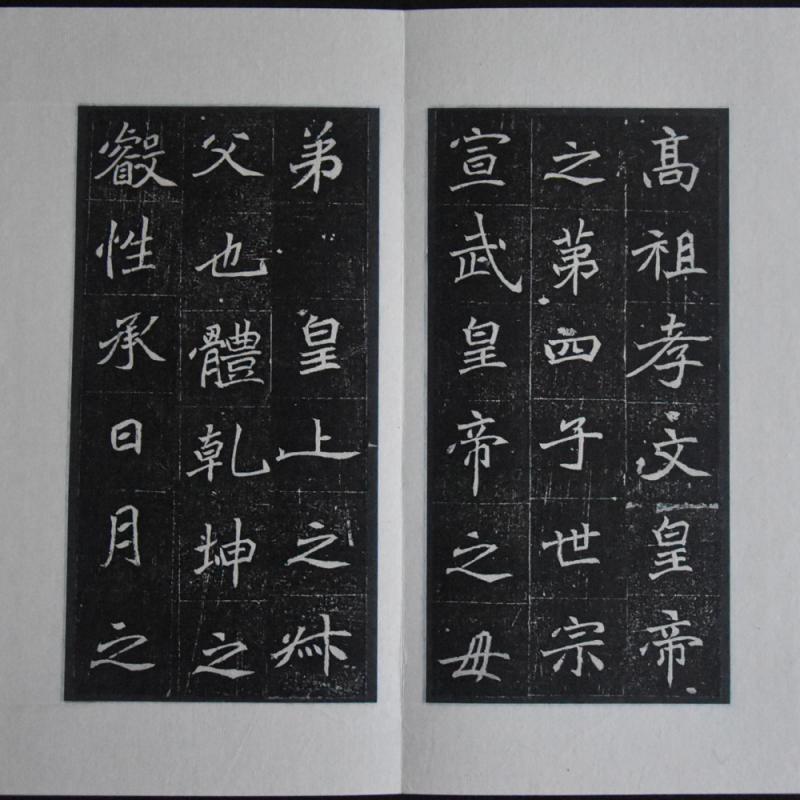 髙祖孝文皇帝
之苐四子世宗
宣武皇帝之毋
弟 皇上之叔
父也體乾坤之
叡性承日月之